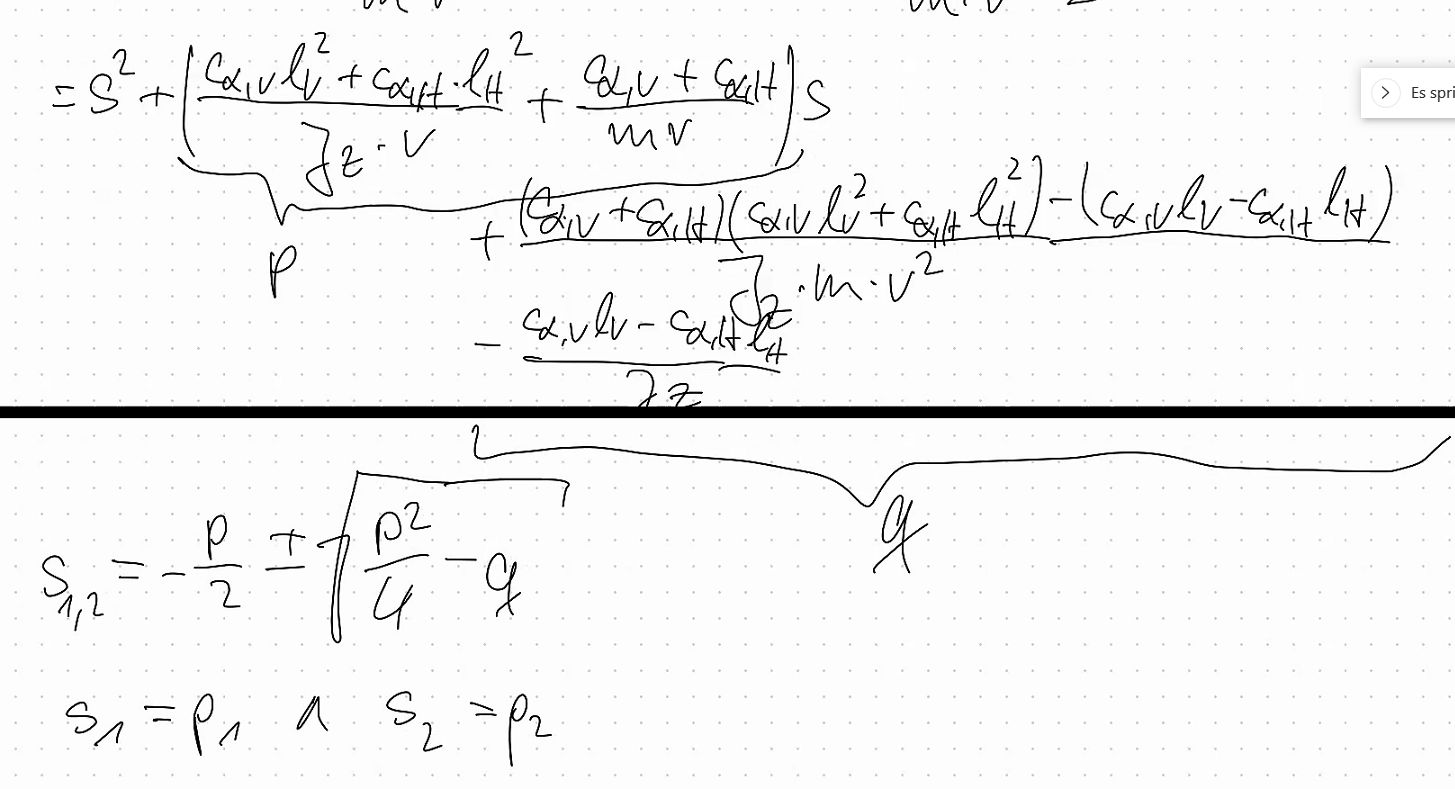 = s² + (\frac{c_{α,V} l_V² + c_{α,H} · l_H²}{J_z · v} + \frac{c_{α,V} + c_{α,H}}{m v}) s
Es spri
p
+ \frac{(c_{α,V} + c_{α,H})(c_{α,V} l_V² + c_{α,H} l_H²) - (c_{α,V} l_V - c_{α,H} l_H)}{J_z · m · v²}
- \frac{c_{α,V} l_V - c_{α,H} l_H}{J_z}
q
s_{1,2} = - \frac{p}{2} ± \sqrt{\frac{p²}{4} - q}
s_1 = p_1 ∧ s_2 = p_2